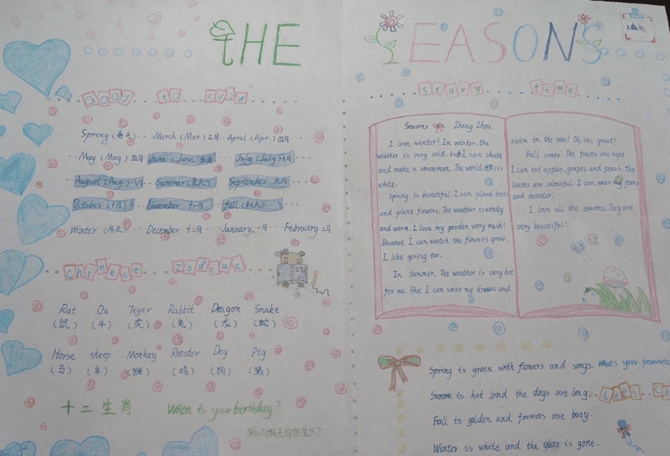 THE SEASONS
to know
story time
Spring (春天) March (Mar) 三月 April (Apr.) 四月
May (May) 五月 June (June 六月 July (July) 七月
August (Aug) 八月 Summer (夏天) September 九月
October 十月 November 十一月 fall (秋天)
Winter (冬天) December 十二月 January 一月 February 二月
chinese zodiac
Rat Ox Tiger Rabbit Dragon Snake
(鼠) (牛) (虎) (兔) (龙) (蛇)
Horse sheep Monkey Rooster Dog Pig
(马) (羊) (猴) (鸡) (狗) (猪)
十二生肖 When is your birthday?
Seasons Zhang Zhen
I love winter! In winter, the
weather is very cold. but I can skate
and make a snowman. The world is in
white.
Spring is beautiful. I can plant trees
and plant flowers. The weather is windy
and warm. I love my garden very much!
Because I can watch the flowers grow.
I like spring too.
In Summer. The weather is very hot
for me. But I can wear my dresses and
swim in the sea! Oh, its great!
Fall comes. The fruits are ripe.
I can eat apples, grapes and pears. The
leaves are colourful. I can wear my jeans
and sweater.
I love all the seasons. They are
very beautiful!
Spring is green with flowers and songs. What's your favourite
Summer is hot and the days are long.
Fall is golden and farmers are busy.
Winter is white and the year is gone.